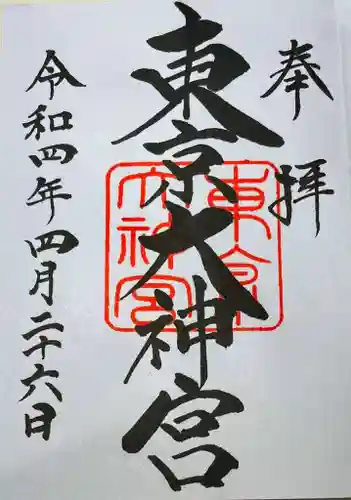 奉拝
東京大神宮
東京大神宮
令和四年四月二十六日